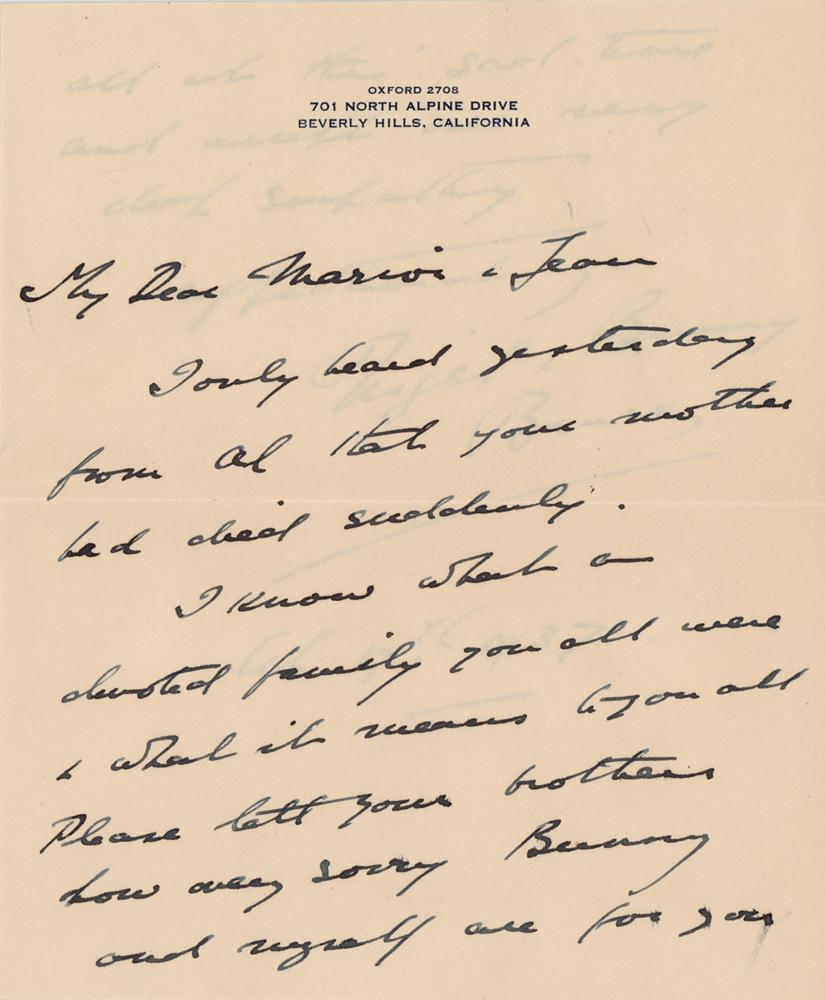 OXFORD 2708
701 NORTH ALPINE DRIVE
BEVERLY HILLS, CALIFORNIA
My Dear Marion & Jean
I only heard yesterday
from Al that your mother
had died suddenly.
I know what a
devoted family you all were
& what it means to you all
Please tell your brothers
how very sorry Bunny
and myself are for you